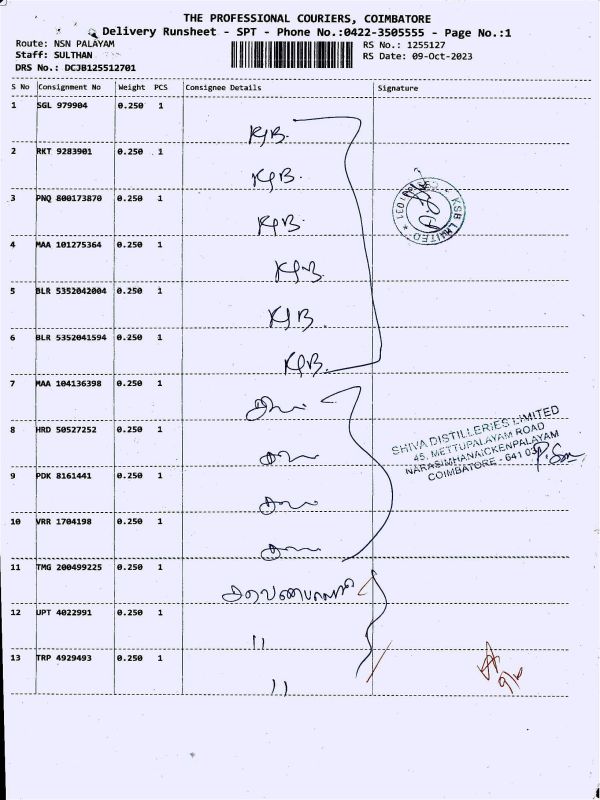 THE PROFESSIONAL COURIERS, COIMBATORE
Delivery Runsheet - SPT - Phone No.:0422-3505555 - Page No.:1
Route: NSN PALAYAM
RS No.: 1255127
Staff: SULTHAN
RS Date: 09-Oct-2023
DRS No.: DCJB125512701
S No Consignment No Weight PCS Consignee Details Signature
1 SGL 979904 0.250 1
2 RKT 9283901 0.250 1
3 PNQ 800173870 0.250 1
4 MAA 101275364 0.250 1
5 BLR 5352042004 0.250 1
6 BLR 5352041594 0.250 1
7 MAA 104136398 0.250 1
8 HRD 50527252 0.250 1
9 PDK 8161441 0.250 1
10 VRR 1704198 0.250 1
11 TMG 200499225 0.250 1
12 UPT 4022991 0.250 1 "
13 TRP 4929493 0.250 1 "
KSB LIMITED
SHIVA DISTILLERIES LIMITED
45, METTUPALAYAM ROAD
NARASIMHANAICKENPALAYAM
COIMBATORE - 641 031